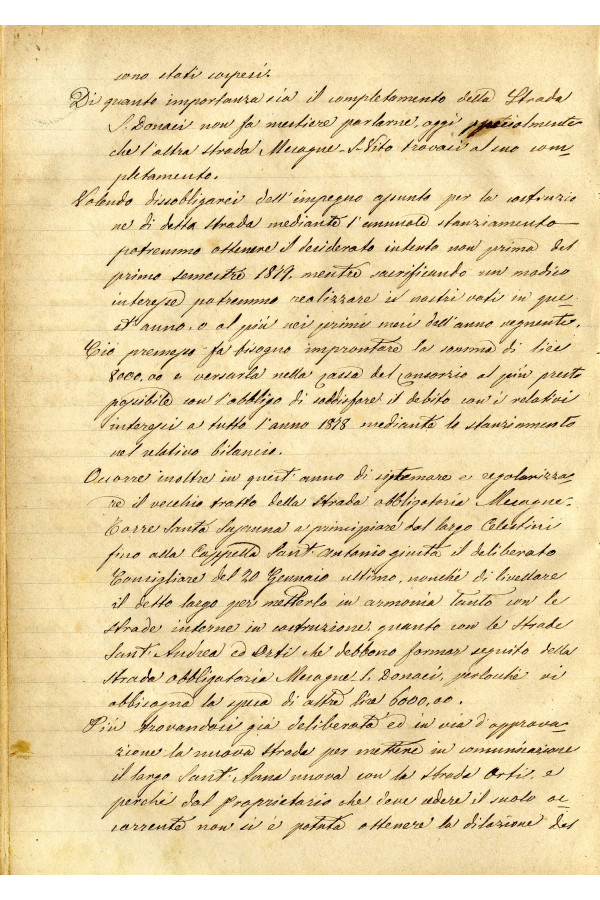 sono stati sospesi.
Di quanto importanza sia il completamento della Strada
S. Donaci non fa mestiere parlarne, oggi specialmente
che l'altra strada Mesagne-S. Vito trovasi al suo com-
pletamento.
Volendo dissobligarci dell'impegno assunto per la costruzio
ne di detta strada mediante l'annuale stanziamento
potremmo ottenere il desiderato intento non prima del
primo semestre 1879, mentre sacrificando un modico
interesse potremmo realizzare i nostri voti in que-
st'anno, o al più nei primi mesi dell'anno vegnente.
Ciò premesso fa bisogno improntare la somma di lire
8000,00 e versarla nella cassa del Consorzio al più presto
possibile con l'obbligo di soddisfare il debito con i relativi
interessi a tutto l'anno 1878 mediante lo stanziamento
nel relativo bilancio.
Occorre inoltre in quest'anno di sistemare e regolarizza-
re il vecchio tratto della strada obbligatoria Mesagne-
Torre Santa Susanna a principiare dal largo Celestini
fino alla Cappella Sant'Antonio giusta il deliberato
Consigliare del 20 Gennaio ultimo, nonchè di livellare
il detto largo per metterlo in armonia tanto con le
strade interne in costruzione, quanto con le strade
Sant'Andrea ed Orti che debbono formar seguito della
strada obbligatoria Mesagne S. Donaci, perlochè vi
abbisogna la spesa di altre lire 6000,00.
Più trovandosi già deliberata ed in via d'approva-
zione la nuova strada per mettere in comunicazione
il largo Sant'Anna nuova con la strada Orti, e
perchè dal proprietario che deve cedere il suolo oc-
corrente non si è potuta ottenere la dilazione del